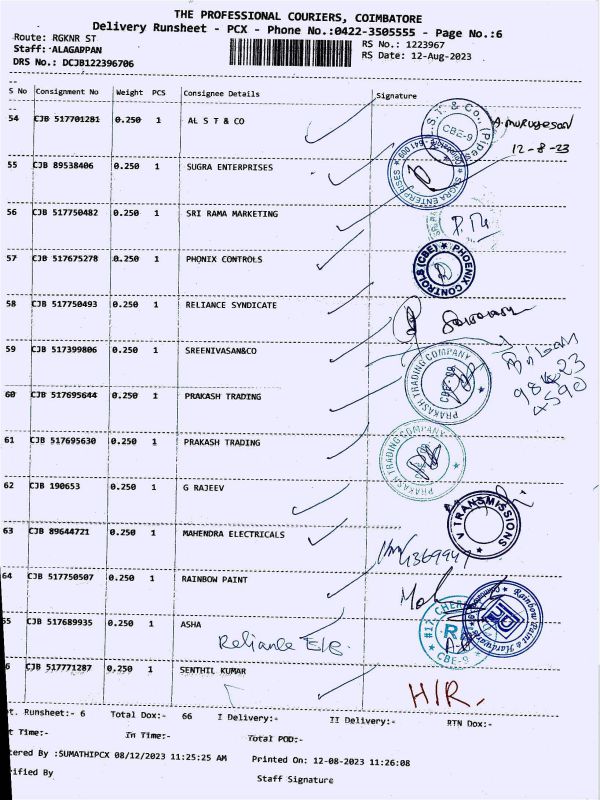 THE PROFESSIONAL COURIERS, COIMBATORE
Delivery Runsheet - PCX - Phone No.:0422-3505555 - Page No.:6
Route: RGKNR ST
Staff: ALAGARPAN
DRS No.: DCJB122396706
RS No.: 1223967
RS Date: 12-Aug-2023
S No Consignment No Weight PCS Consignee Details Signature
54 CJB 517701281 0.250 1 AL S T & CO
S.T. & Co., (Pipes CBE-9
A.Murugesan
12-8-23
55 CJB 89538406 0.250 1 SUGRA ENTERPRISES
SUGRA ENTERPRISES
56 CJB 517750482 0.250 1 SRI RAMA MARKETING
57 CJB 517675278 0.250 1 PHONIX CONTROLS
PHOENIX CONTROLS (CBE)
58 CJB 517750493 0.250 1 RELIANCE SYNDICATE
59 CJB 517399806 0.250 1 SREENIVASAN&CO
60 CJB 517695644 0.250 1 PRAKASH TRADING
PRAKASH TRADING COMPANY CBE-08
61 CJB 517695630 0.250 1 PRAKASH TRADING
PRAKASH TRADING COMPANY
62 CJB 190653 0.250 1 G RAJEEV
V TRANSMISSIONS
63 CJB 89644721 0.250 1 MAHENDRA ELECTRICALS
64 CJB 517750507 0.250 1 RAINBOW PAINT
Rainbow Paints & Hardwares
55 CJB 517689935 0.250 1 ASHA
Reliance E/B.
CBE-9
6 CJB 517771287 0.250 1 SENTHIL KUMAR
H/R.
t. Runsheet:- 6 Total Dox:- 66 I Delivery:- II Delivery:- RTN Dox:-
t Time:- In Time:- Total POD:-
tered By :SUMATHIPCX 08/12/2023 11:25:25 AM Printed On: 12-08-2023 11:26:08
rified By Staff Signature